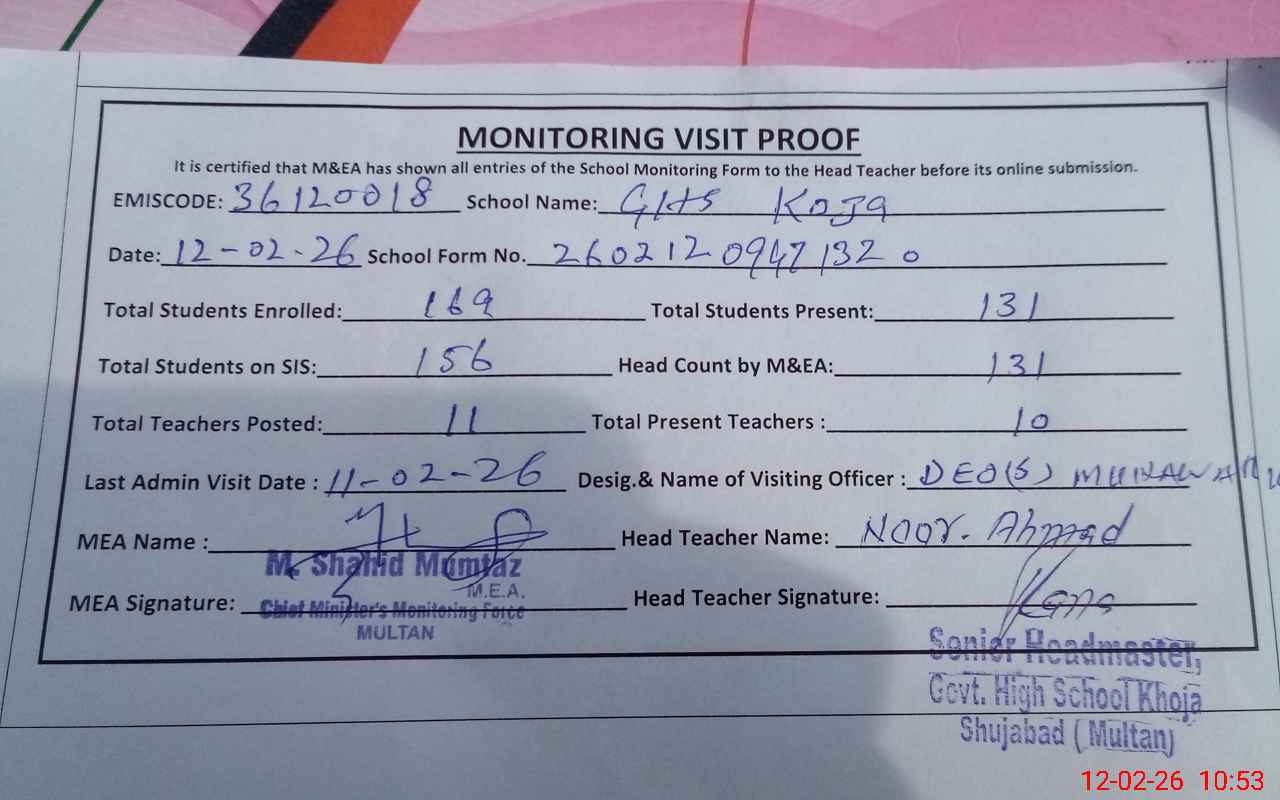 MONITORING VISIT PROOF
It is certified that M&EA has shown all entries of the School Monitoring Form to the Head Teacher before its online submission.
EMISCODE: 36120018 School Name: GHS Koja
Date: 12-02-26 School Form No. 26021209471320
Total Students Enrolled: 169 Total Students Present: 131
Total Students on SIS: 156 Head Count by M&EA: 131
Total Teachers Posted: 11 Total Present Teachers : 10
Last Admin Visit Date : 11-02-26 Desig.& Name of Visiting Officer : DEO(S)
MEA Name : Head Teacher Name: Noor. Ahmad
M. Shahid Mumtaz
M.E.A.
MEA Signature: Head Teacher Signature:
Chief Minister's Monitoring Force
MULTAN
Senior Headmaster,
Govt. High School Khoja
Shujabad (Multan)
12-02-26 10:53